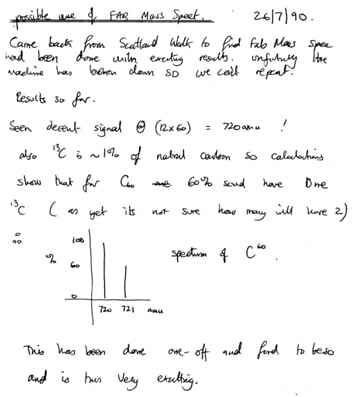 possible use of FAB Mass Spect. 26/7/90.
Came back from Scotland Walk to find Fab Mass spec
had been done with exciting results. unfortunately the
machine has broken down so we can't repeat.
Results so far.
Seen decent signal @ (12x60) = 720 amu !
also ¹³C is ~1% of natural carbon so calculations
show that for C₆₀ 60% soud have One
¹³C ( as yet its not sure how many will have 2)
%
100
60
0
720 721 amu
spectrum of C⁶⁰.
This has been done one-off and find to be so
and is thus very exciting.